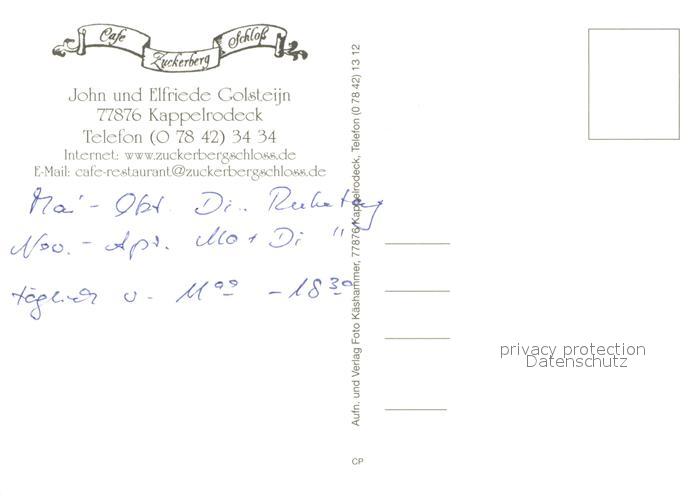 Cafe Zuckerberg Schloß
John und Elfriede Golsteijn
77876 Kappelrodeck
Telefon (0 78 42) 34 34
Internet: www.zuckerbergschloss.de
E-Mail: cafe-restaurant@zuckerbergschloss.de
Mai - Okt. Di.. Ruhetag
Nov. - Apr. Mo + Di "
täglich v. 11⁰⁰ - 18³⁰
Aufn. und Verlag Foto Käshammer, 77876 Kappelrodeck, Telefon (0 78 42) 13 12
CP
privacy protection
Datenschutz